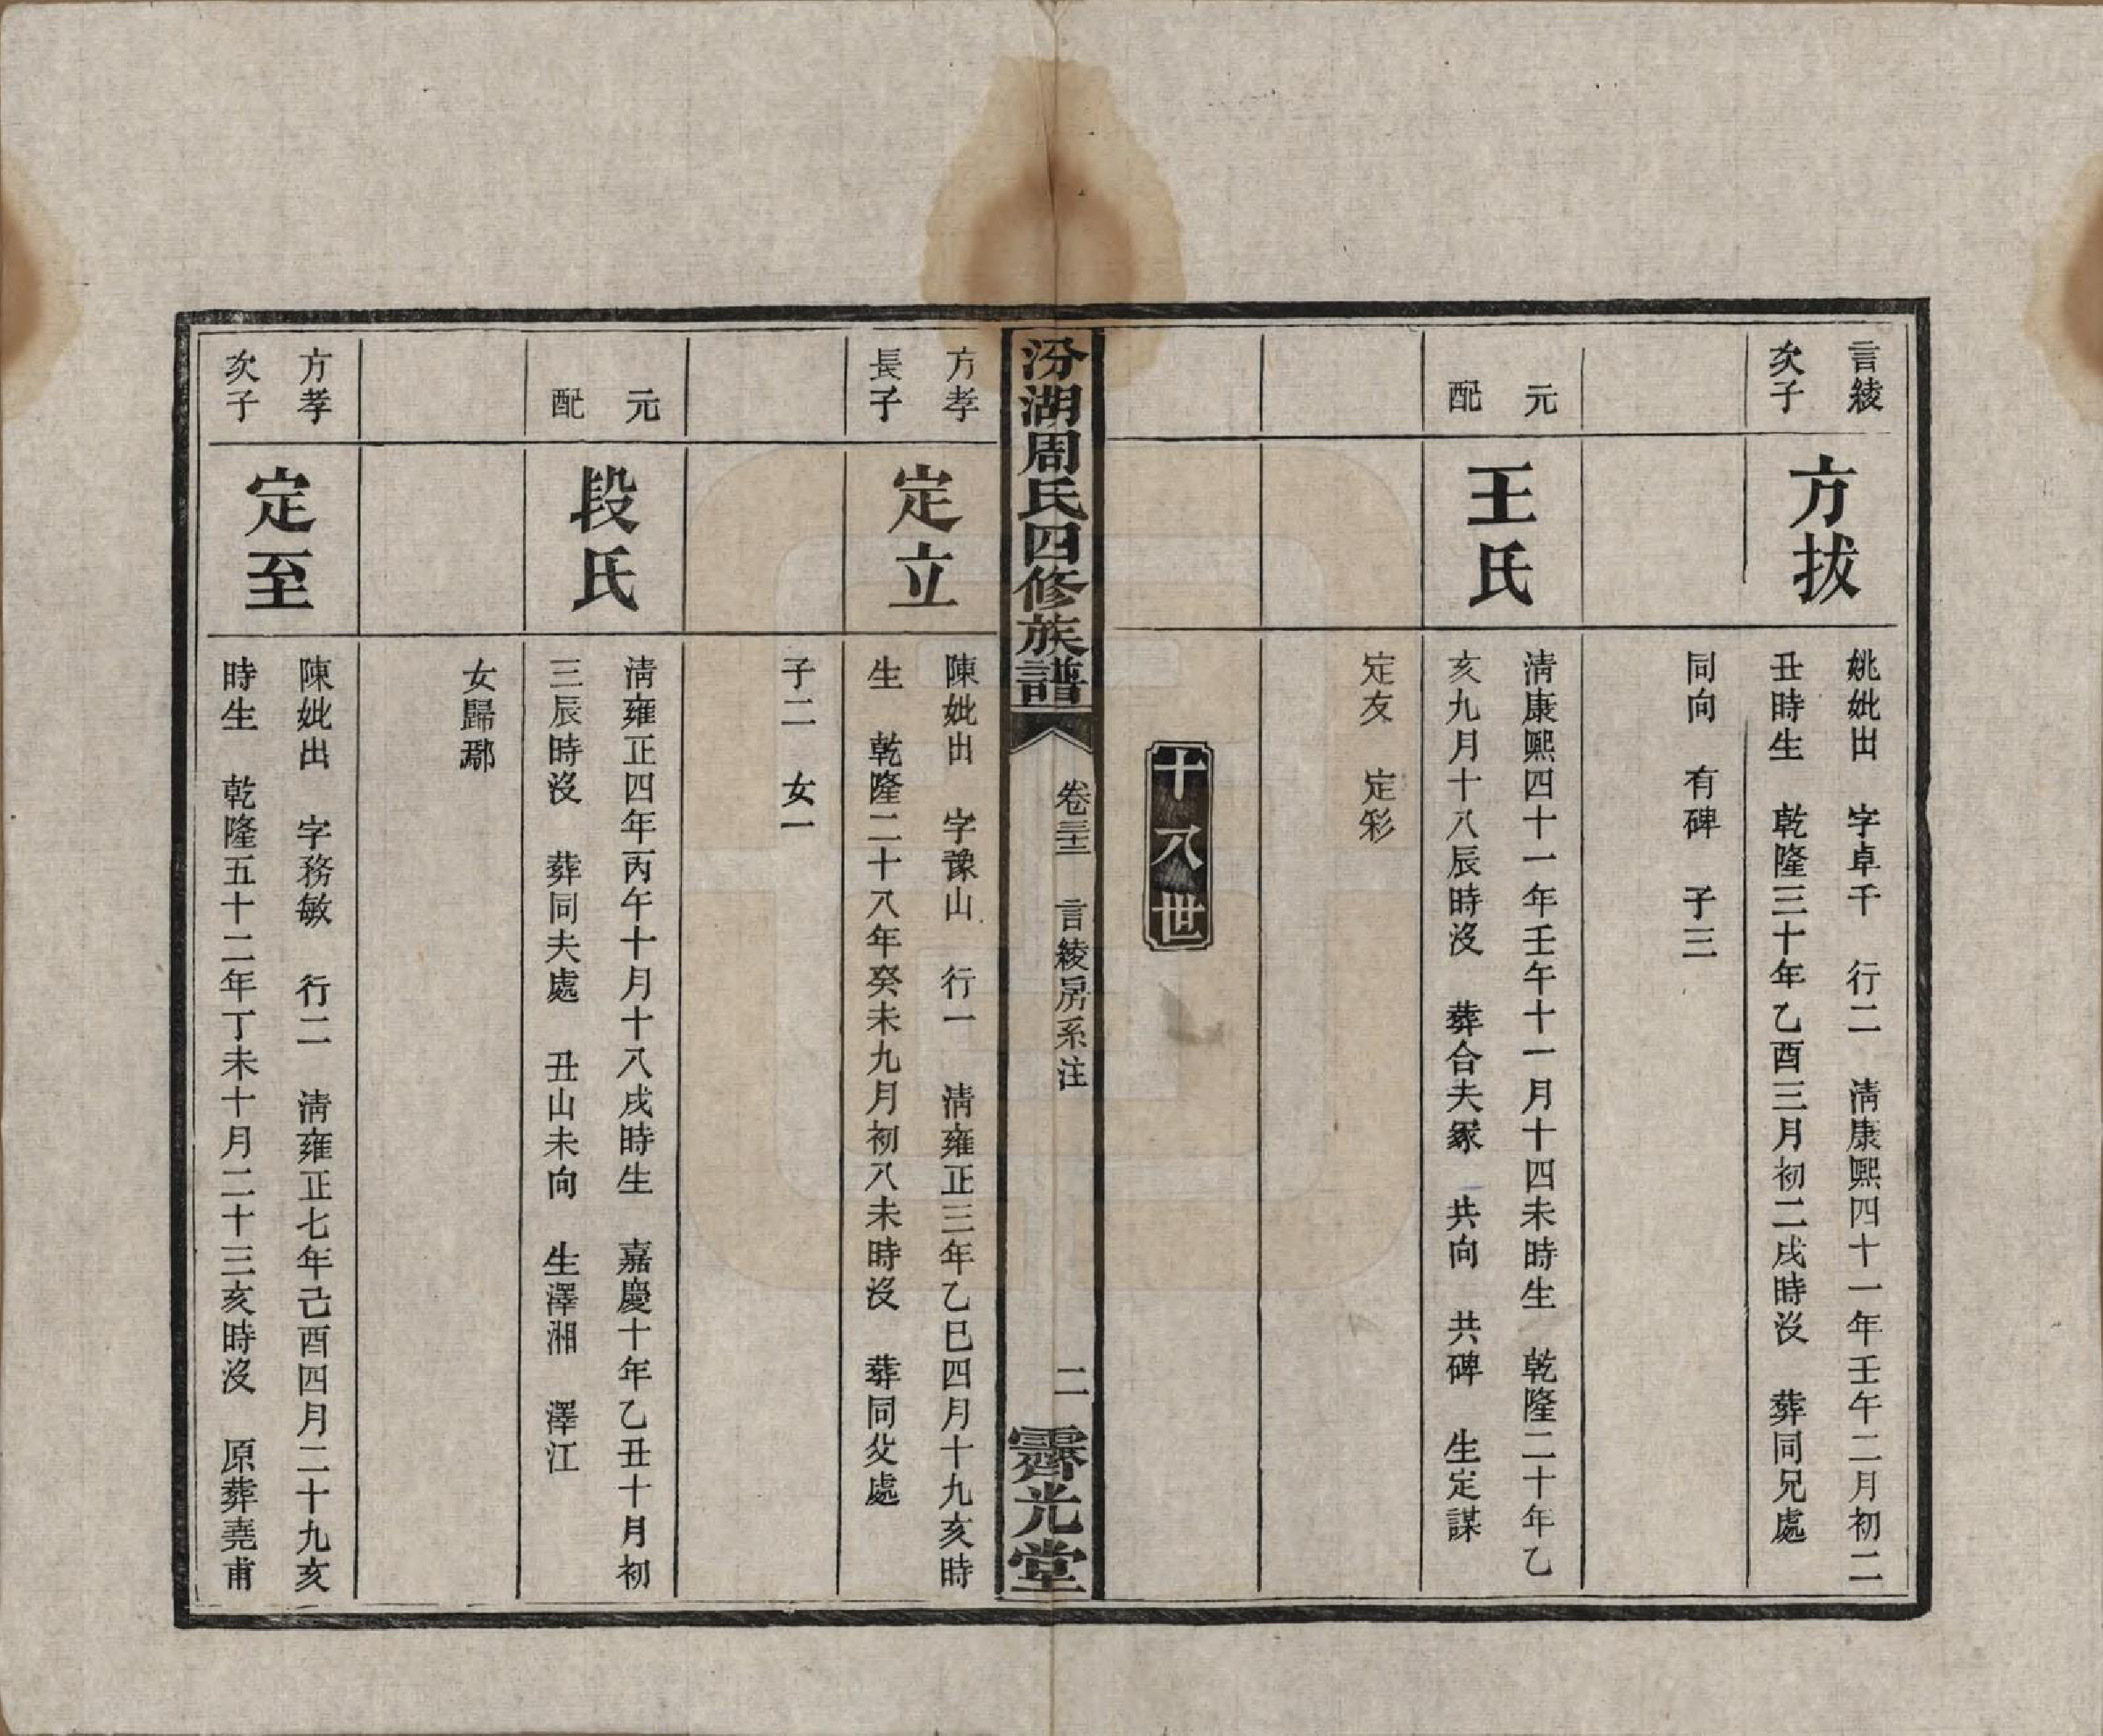 言綾
次子
方拔
姚妣出 字卓千 行二 淸康熙四十一年壬午二月初二
丑時生 乾隆三十年乙酉三月初二戌時沒 葬同兄處
同向 有碑 子三
元
配
王氏
淸康熙四十一年壬午十一月十四未時生 乾隆二十年乙
亥九月十八辰時沒 葬合夫冢 共向 共碑 生定謀
定友 定彩
十八世
汾湖周氏四修族譜
卷三十三 言綾房系注
二
霽光堂
方孝
長子
定立
陳妣出 字豫山 行一 淸雍正三年乙巳四月十九亥時
生 乾隆二十八年癸未九月初八未時沒 葬同父處
子二 女一
元
配
段氏
淸雍正四年丙午十月十八戌時生 嘉慶十年乙丑十月初
三辰時沒 葬同夫處 丑山未向 生澤湘 澤江
女歸鄢
方孝
次子
定至
陳妣出 字務敏 行二 淸雍正七年己酉四月二十九亥
時生 乾隆五十二年丁未十月二十三亥時沒 原葬堯甫